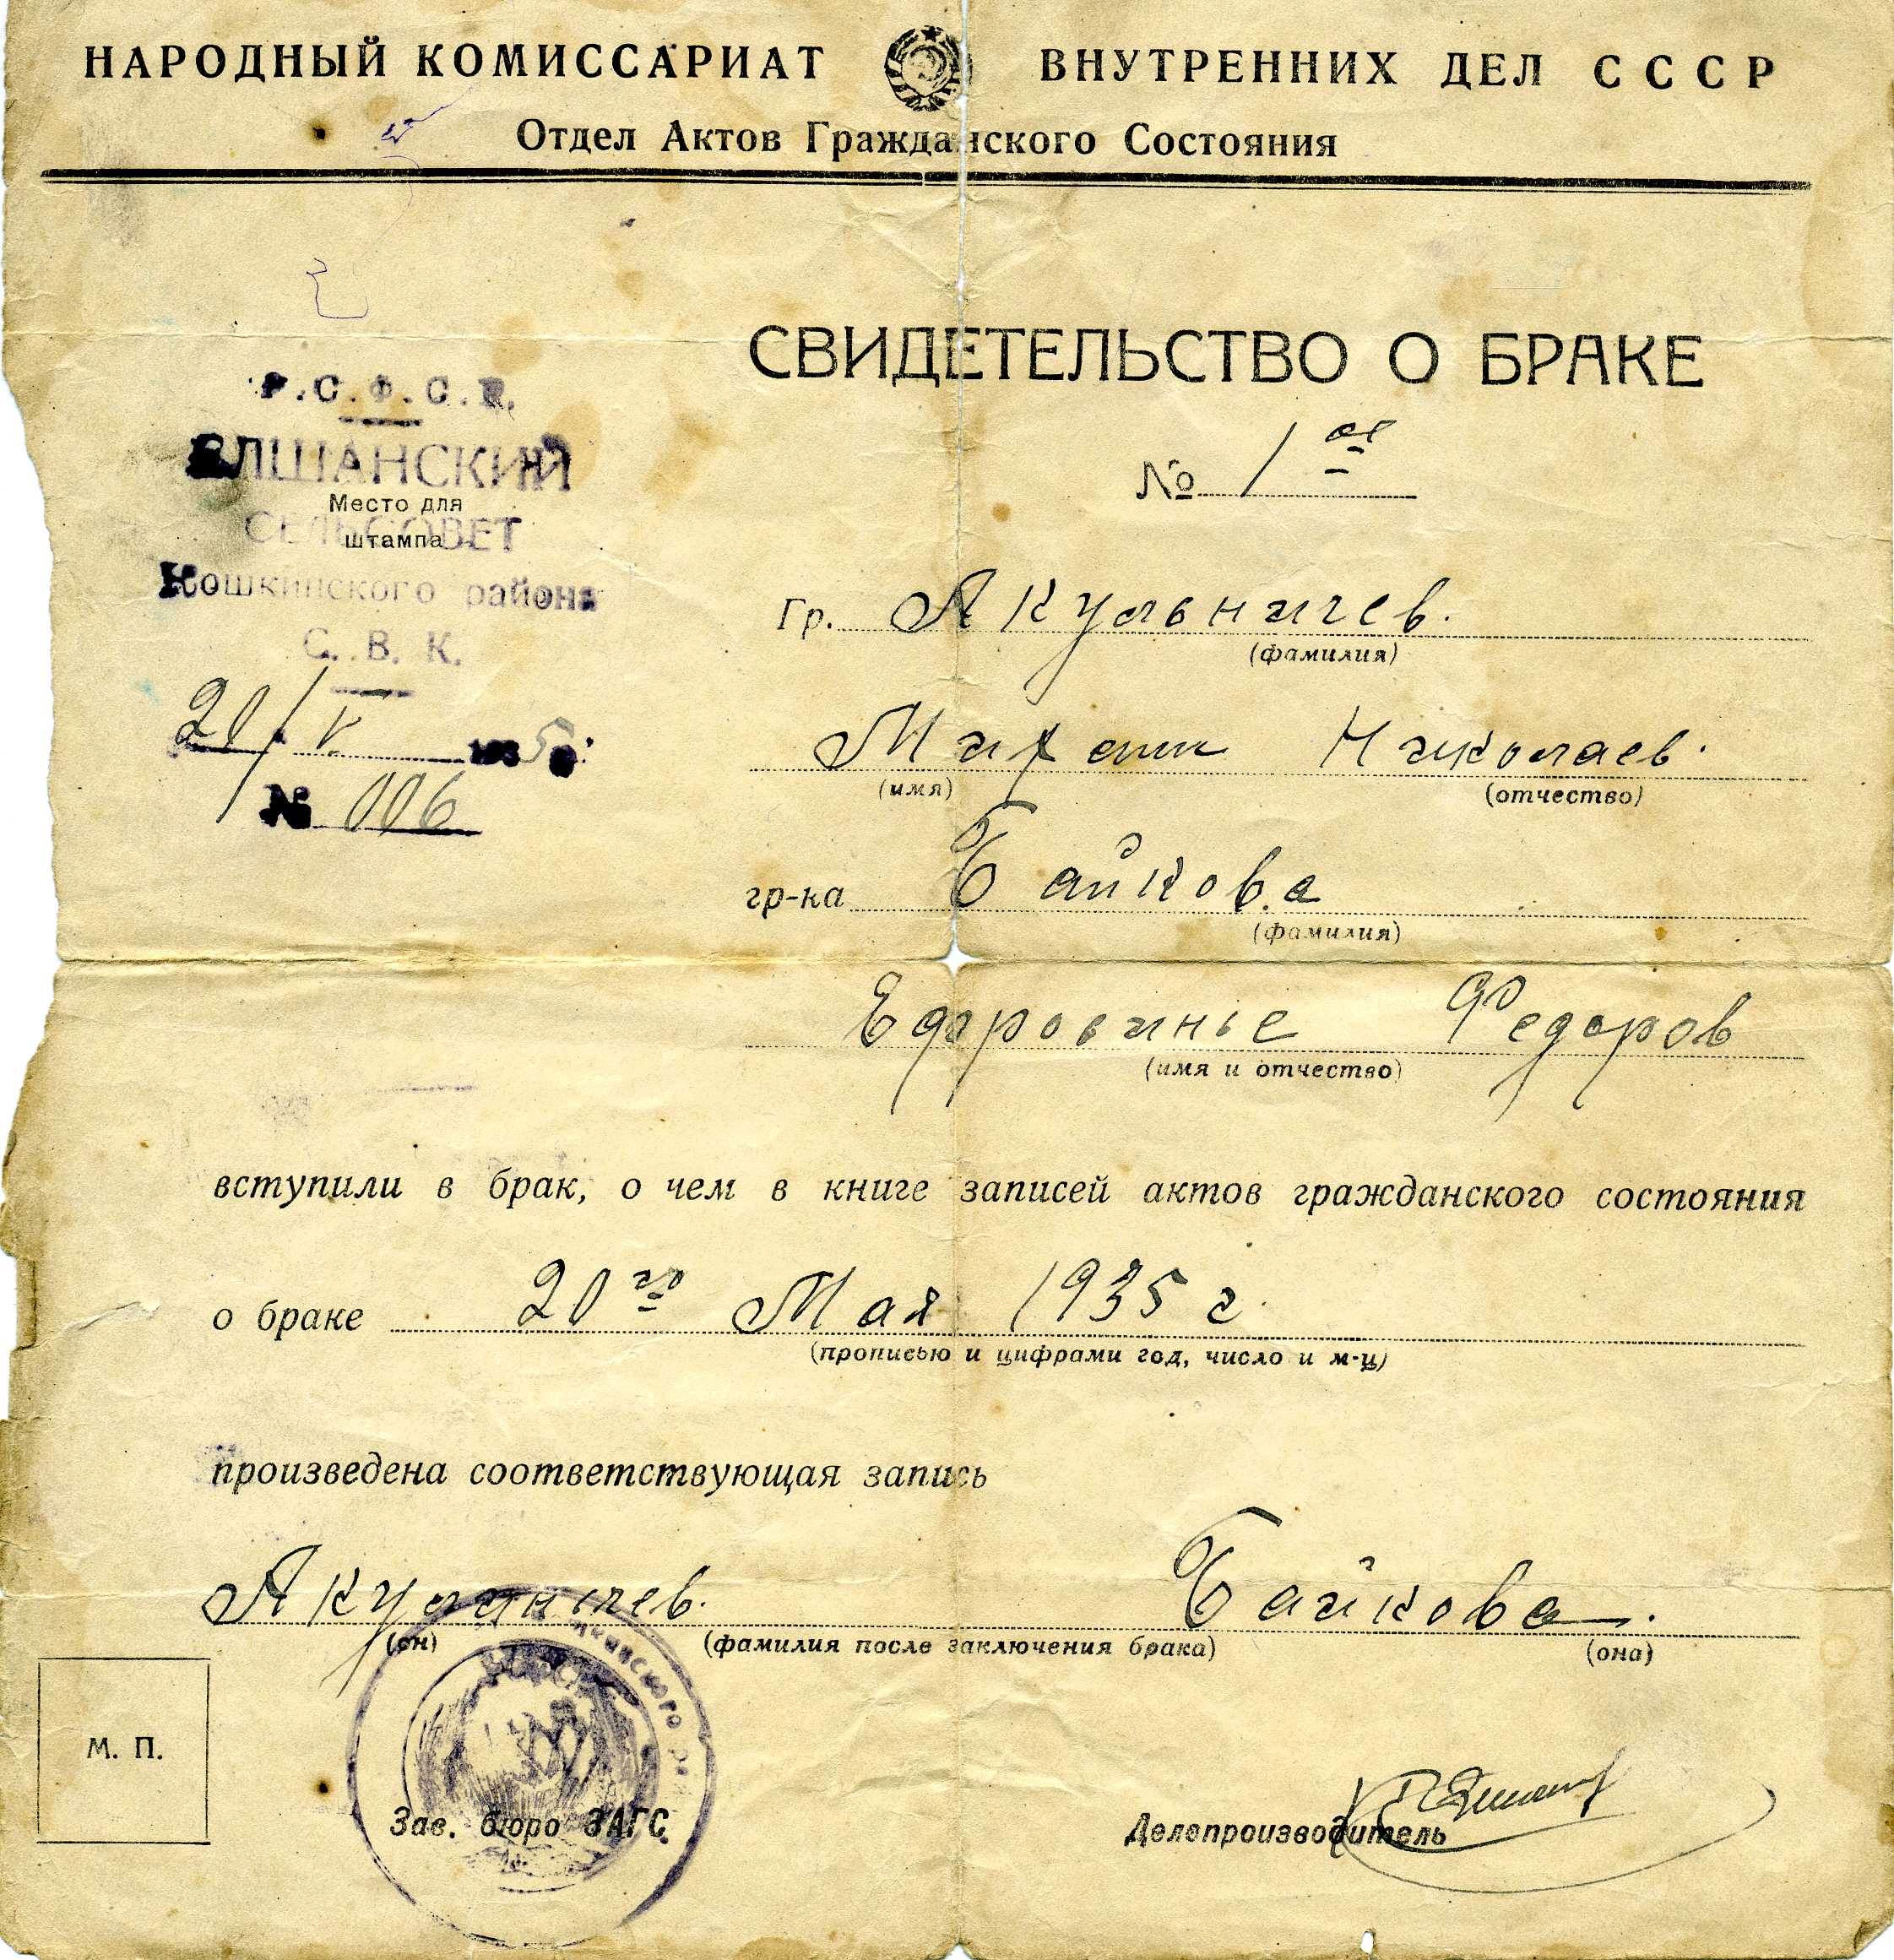 НАРОДНЫЙ КОМИССАРИАТ ВНУТРЕННИХ ДЕЛ СССР
Отдел Актов Гражданского Состояния
СВИДЕТЕЛЬСТВО О БРАКЕ
№ 1ое
Р.С.Ф.С.Р.
ЕЛШАНСКИЙ
Место для
СЕЛЬСОВЕТ
штампа
Кошкинского района
С. В. К.
20/V. 1935г.
№ 006
Гр. Акульничев.
(фамилия)
Михаил Николаев.
(имя) (отчество)
гр-ка Байкова
(фамилия)
Федоров
(имя и отчество)
вступили в брак, о чем в книге записей актов гражданского состояния
о браке 20го Мая 1935 г.
(прописью и цифрами год, число и м-ц)
произведена соответствующая запись
Акульничев. Байкова.
(он) (фамилия после заключения брака) (она)
М. П.
Зав. бюро ЗАГС
Делопроизводитель